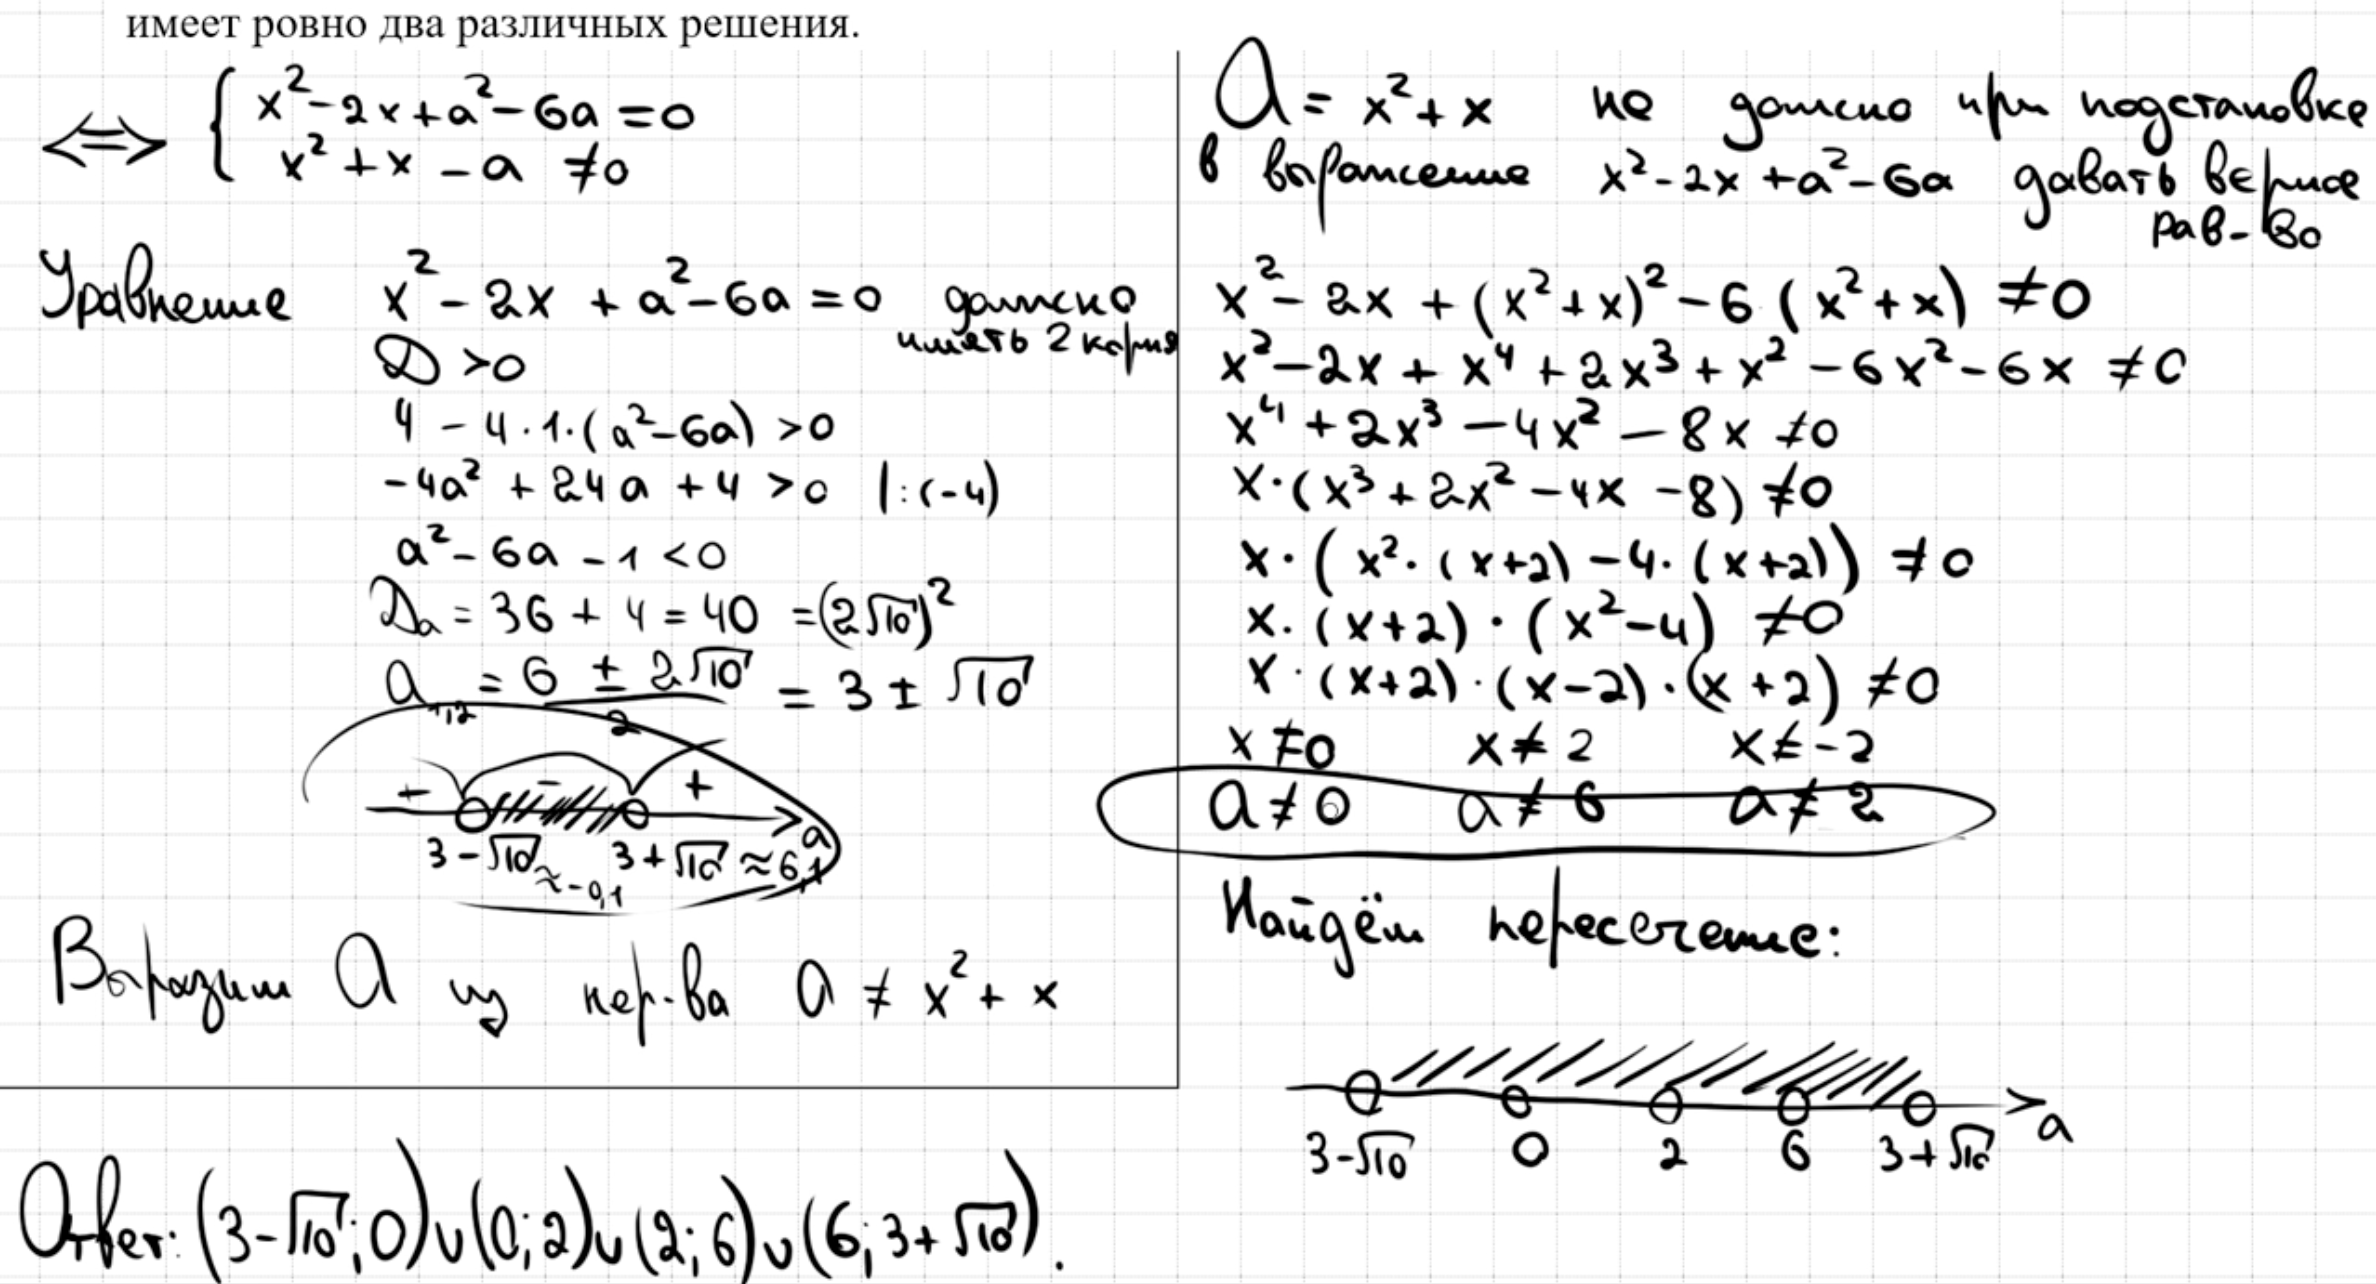 имеет ровно два различных решения.
⟺ { x² - 2x + a² - 6a = 0
x² + x - a ≠ 0
Уравнение x² - 2x + a² - 6a = 0 должно
иметь 2 корня
D > 0
4 - 4 · 1 · (a² - 6a) > 0
-4a² + 24a + 4 > 0 | : (-4)
a² - 6a - 1 < 0
Dₐ = 36 + 4 = 40 = (2√10)²
a₁,₂ = (6 ± 2√10)/2 = 3 ± √10
+ - +
a
3 - √10 ≈ -0,1 3 + √10 ≈ 6,1
Выразим a из нер-ва a ≠ x² + x
a = x² + x не должно при подстановке
в выражение x² - 2x + a² - 6a давать верное
рав-во
x² - 2x + (x² + x)² - 6 (x² + x) ≠ 0
x² - 2x + x⁴ + 2x³ + x² - 6x² - 6x ≠ 0
x⁴ + 2x³ - 4x² - 8x ≠ 0
x · (x³ + 2x² - 4x - 8) ≠ 0
x · (x² · (x+2) - 4 · (x+2)) ≠ 0
x · (x+2) · (x² - 4) ≠ 0
x · (x+2) · (x-2) · (x+2) ≠ 0
x ≠ 0 x ≠ 2 x ≠ -2
a ≠ 0 a ≠ 6 a ≠ 2
Найдём пересечение:
3-√10 0 2 6 3+√10 a
Ответ: (3-√10; 0) ∪ (0; 2) ∪ (2; 6) ∪ (6; 3+√10).